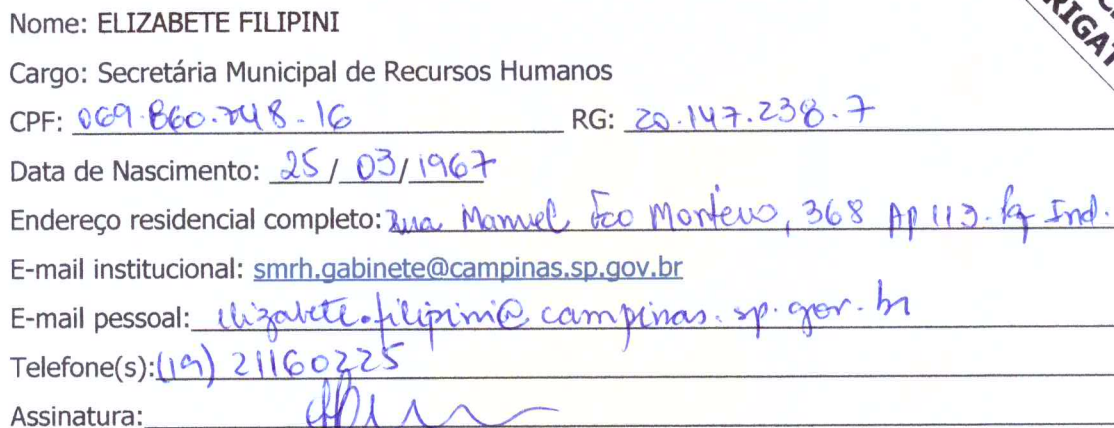 Nome: ELIZABETE FILIPINI
Cargo: Secretária Municipal de Recursos Humanos
CPF: 069.860.748-16 RG: 20.147.238.7
Data de Nascimento: 25/03/1967
Endereço residencial completo: Rua Manuel Fco Monteiro, 368 Ap 113. Pq Ind.
E-mail institucional: smrh.gabinete@campinas.sp.gov.br
E-mail pessoal: elizabete.filipini@campinas.sp.gov.br
Telefone(s): (19) 21160225
Assinatura: